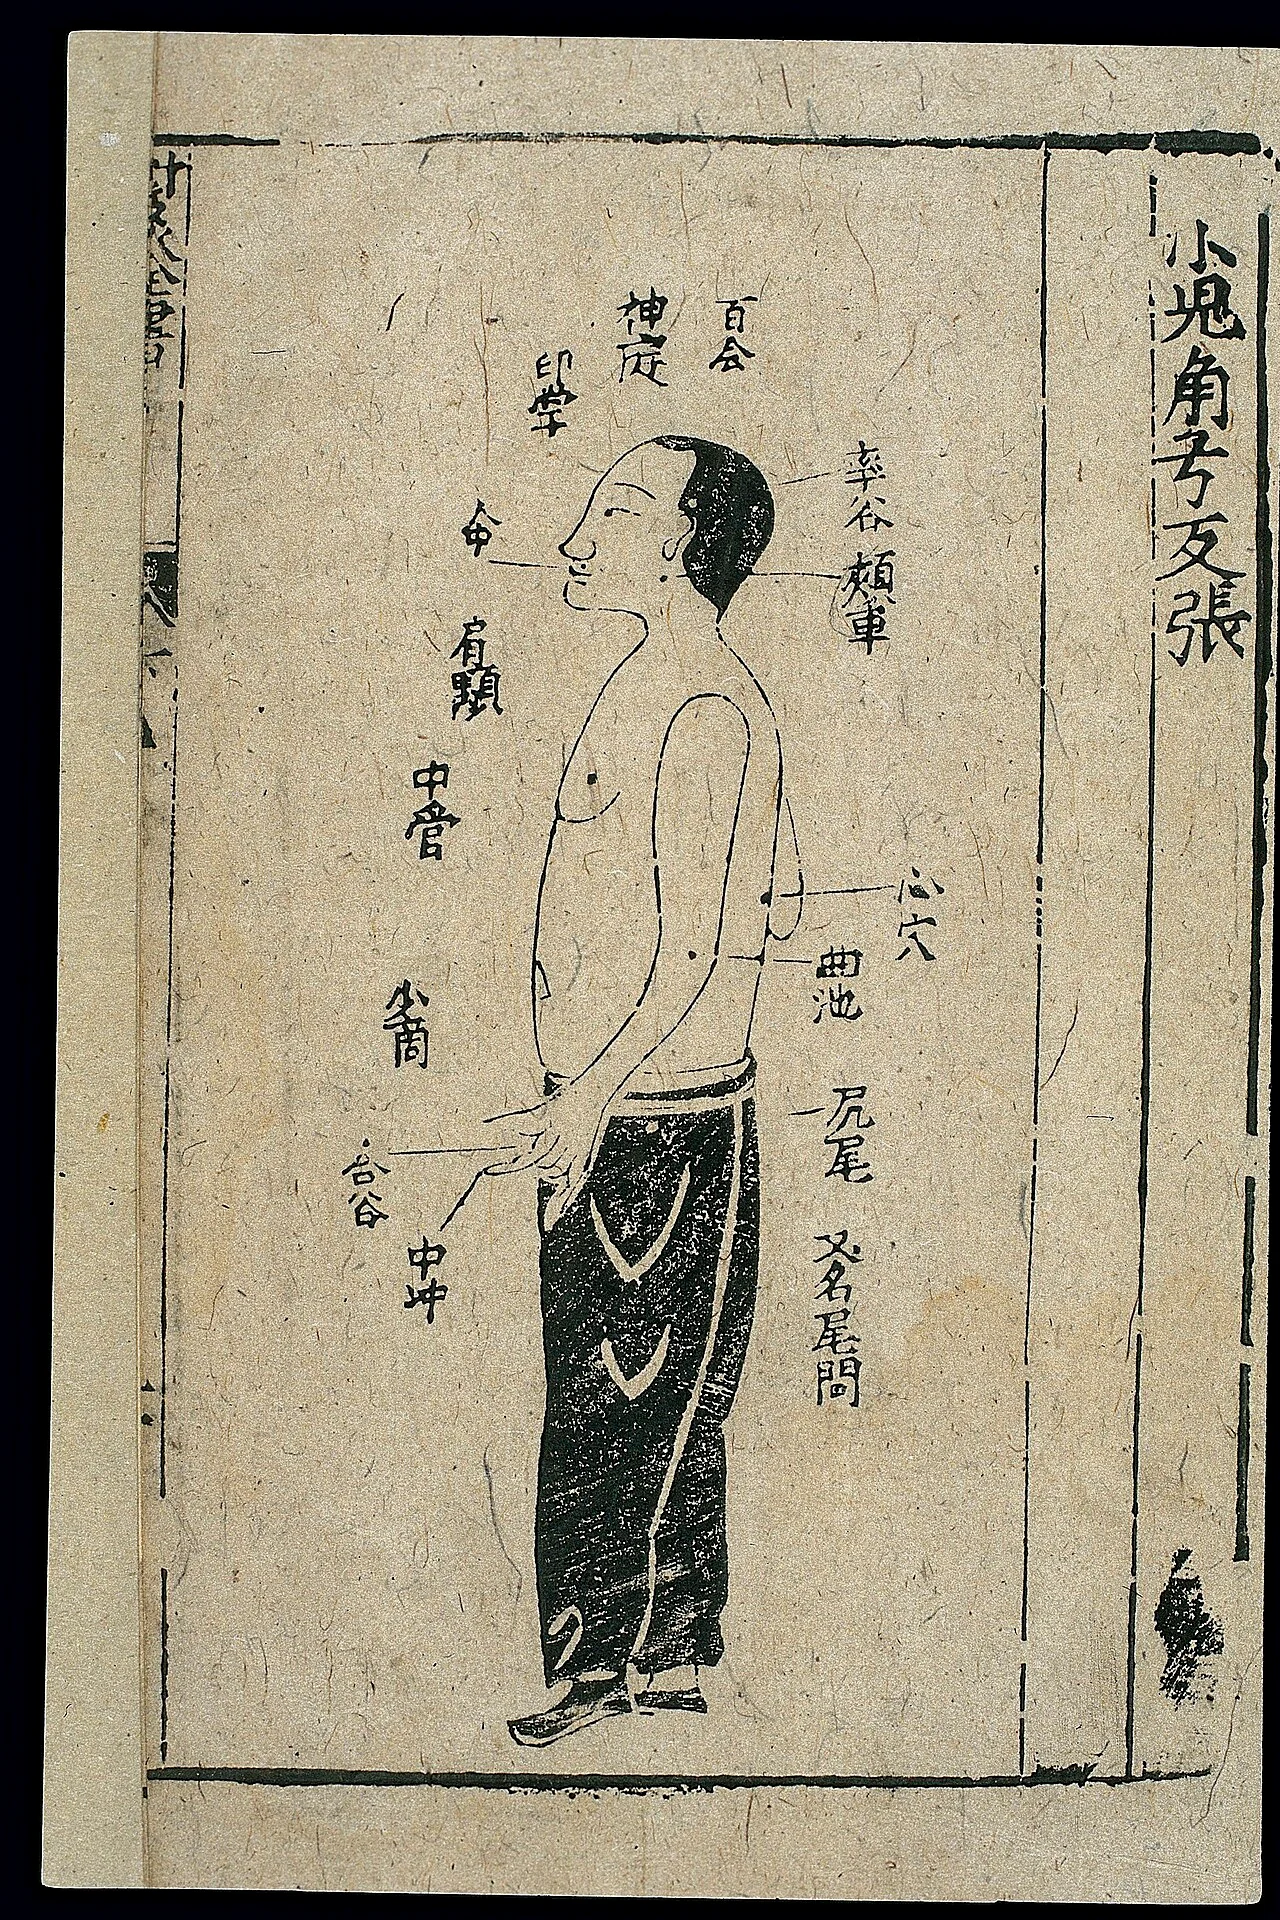 小児角弓反張
百会
神庭
印堂
率谷
頰車
人中
肩顒
中管
心穴
曲池
少商
尻尾
合谷
中冲
又名尾閭
全書